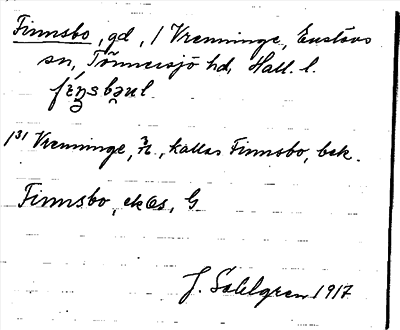 Finnsbo, gd, / Vrenninge, Enslövs
sn, Tönnersjö hd, Hall. l.
1³¹ Vrenninge, ⅞, kallas Finnsbo, bek.
Finnsbo, ekbs, G
J. Sahlgren 1917